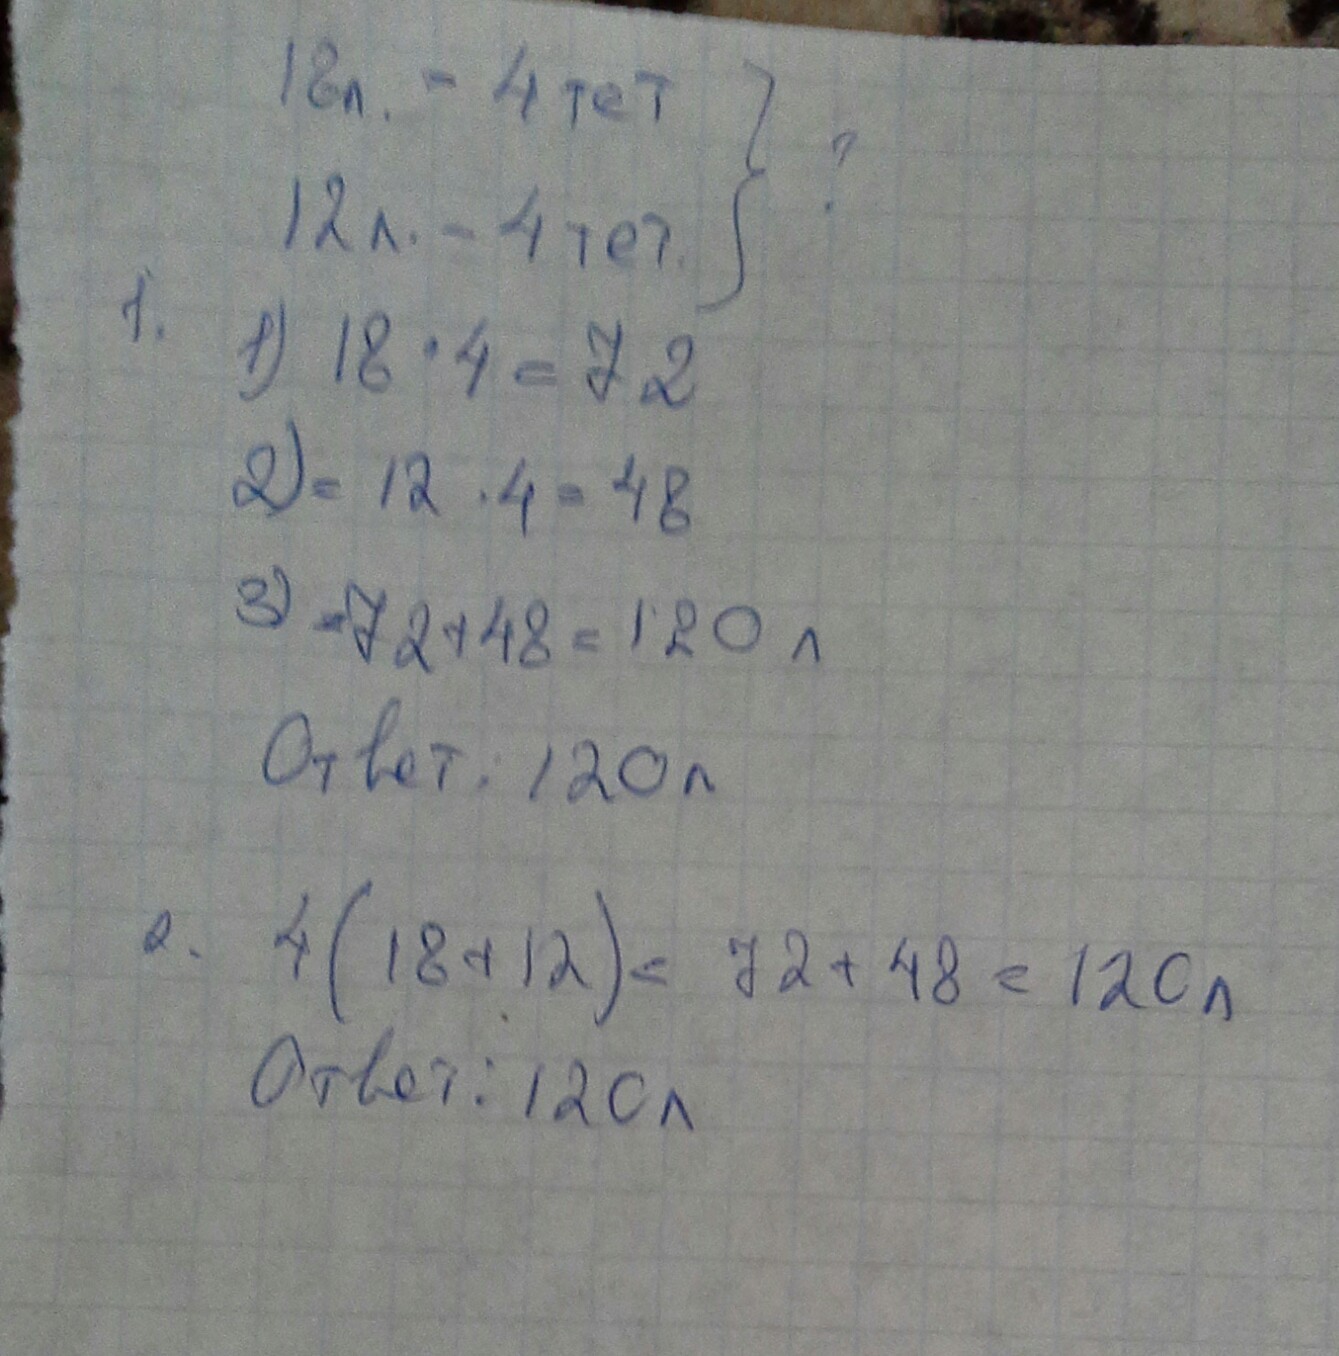 18л. - 4 тет } ?
12л. - 4 тет.
1. 1) 18 · 4 = 72
2) = 12 · 4 = 48
3) = 72 + 48 = 120 л
Ответ: 120л
2. 4(18+12) = 72 + 48 = 120л
Ответ: 120л